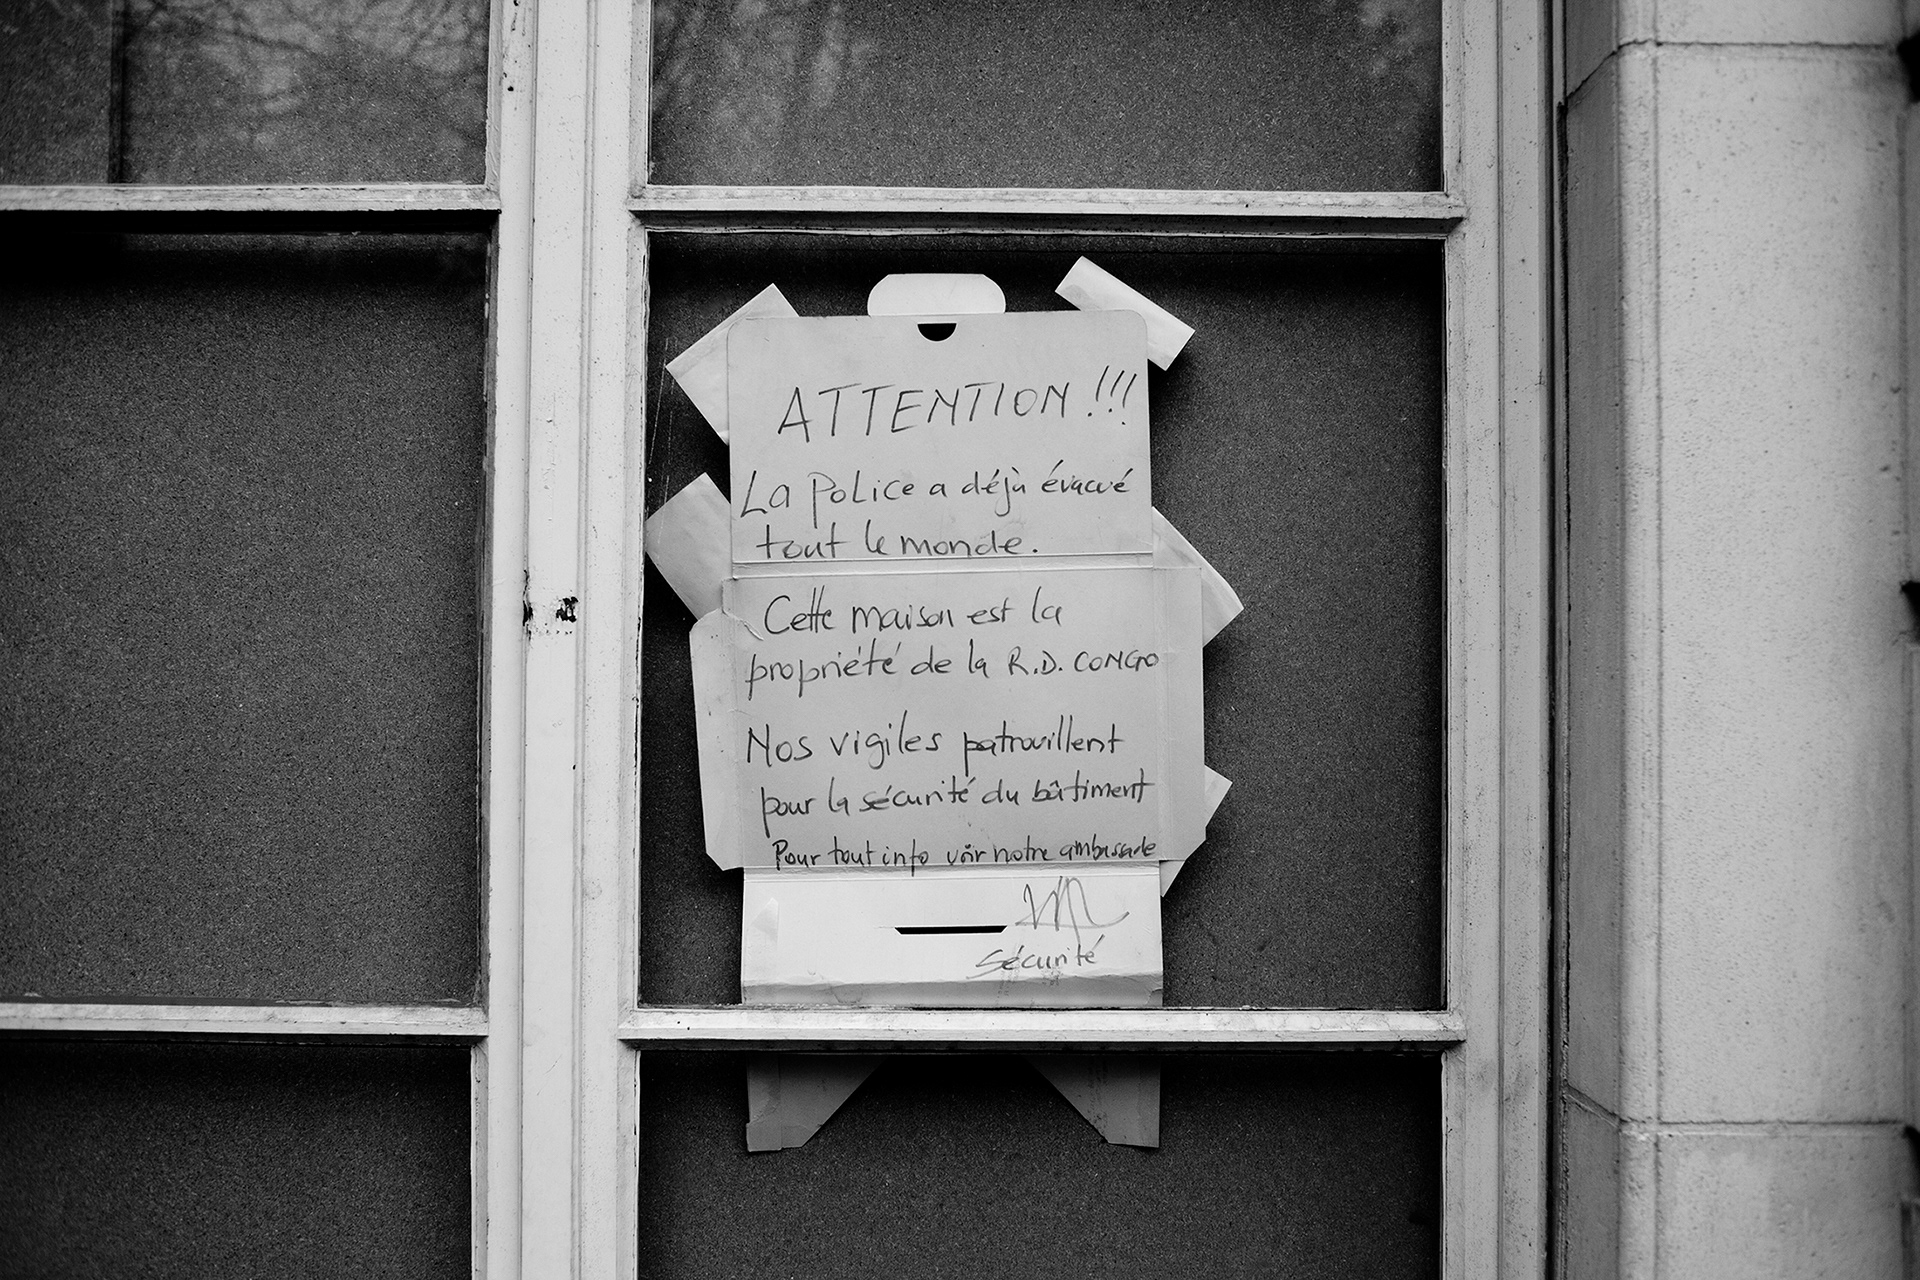 ATTENTION !!!
La Police a déjà évacué
tout le monde.
Cette maison est la
propriété de la R.D. CONGO
Nos vigiles patrouillent
pour la sécurité du bâtiment
Pour tout info voir notre ambassade
Sécurité